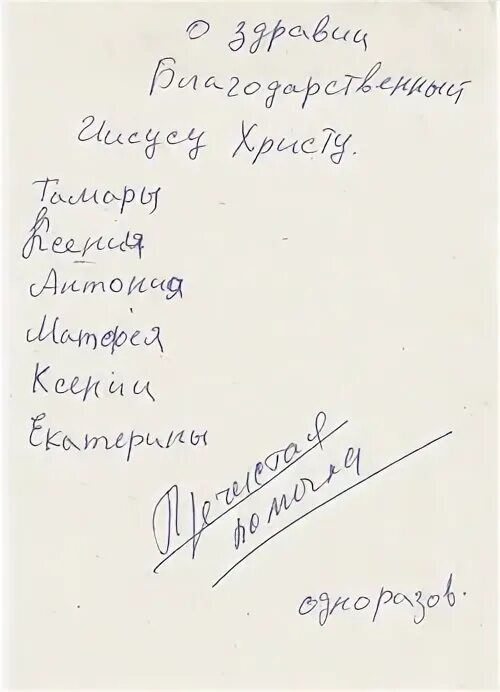 О здравии
Благодарственный
Иисусу Христу.
Тамары
Ксения
Антония
Матфея
Ксении
Екатерины
Пречистая
помогла
одноразов.